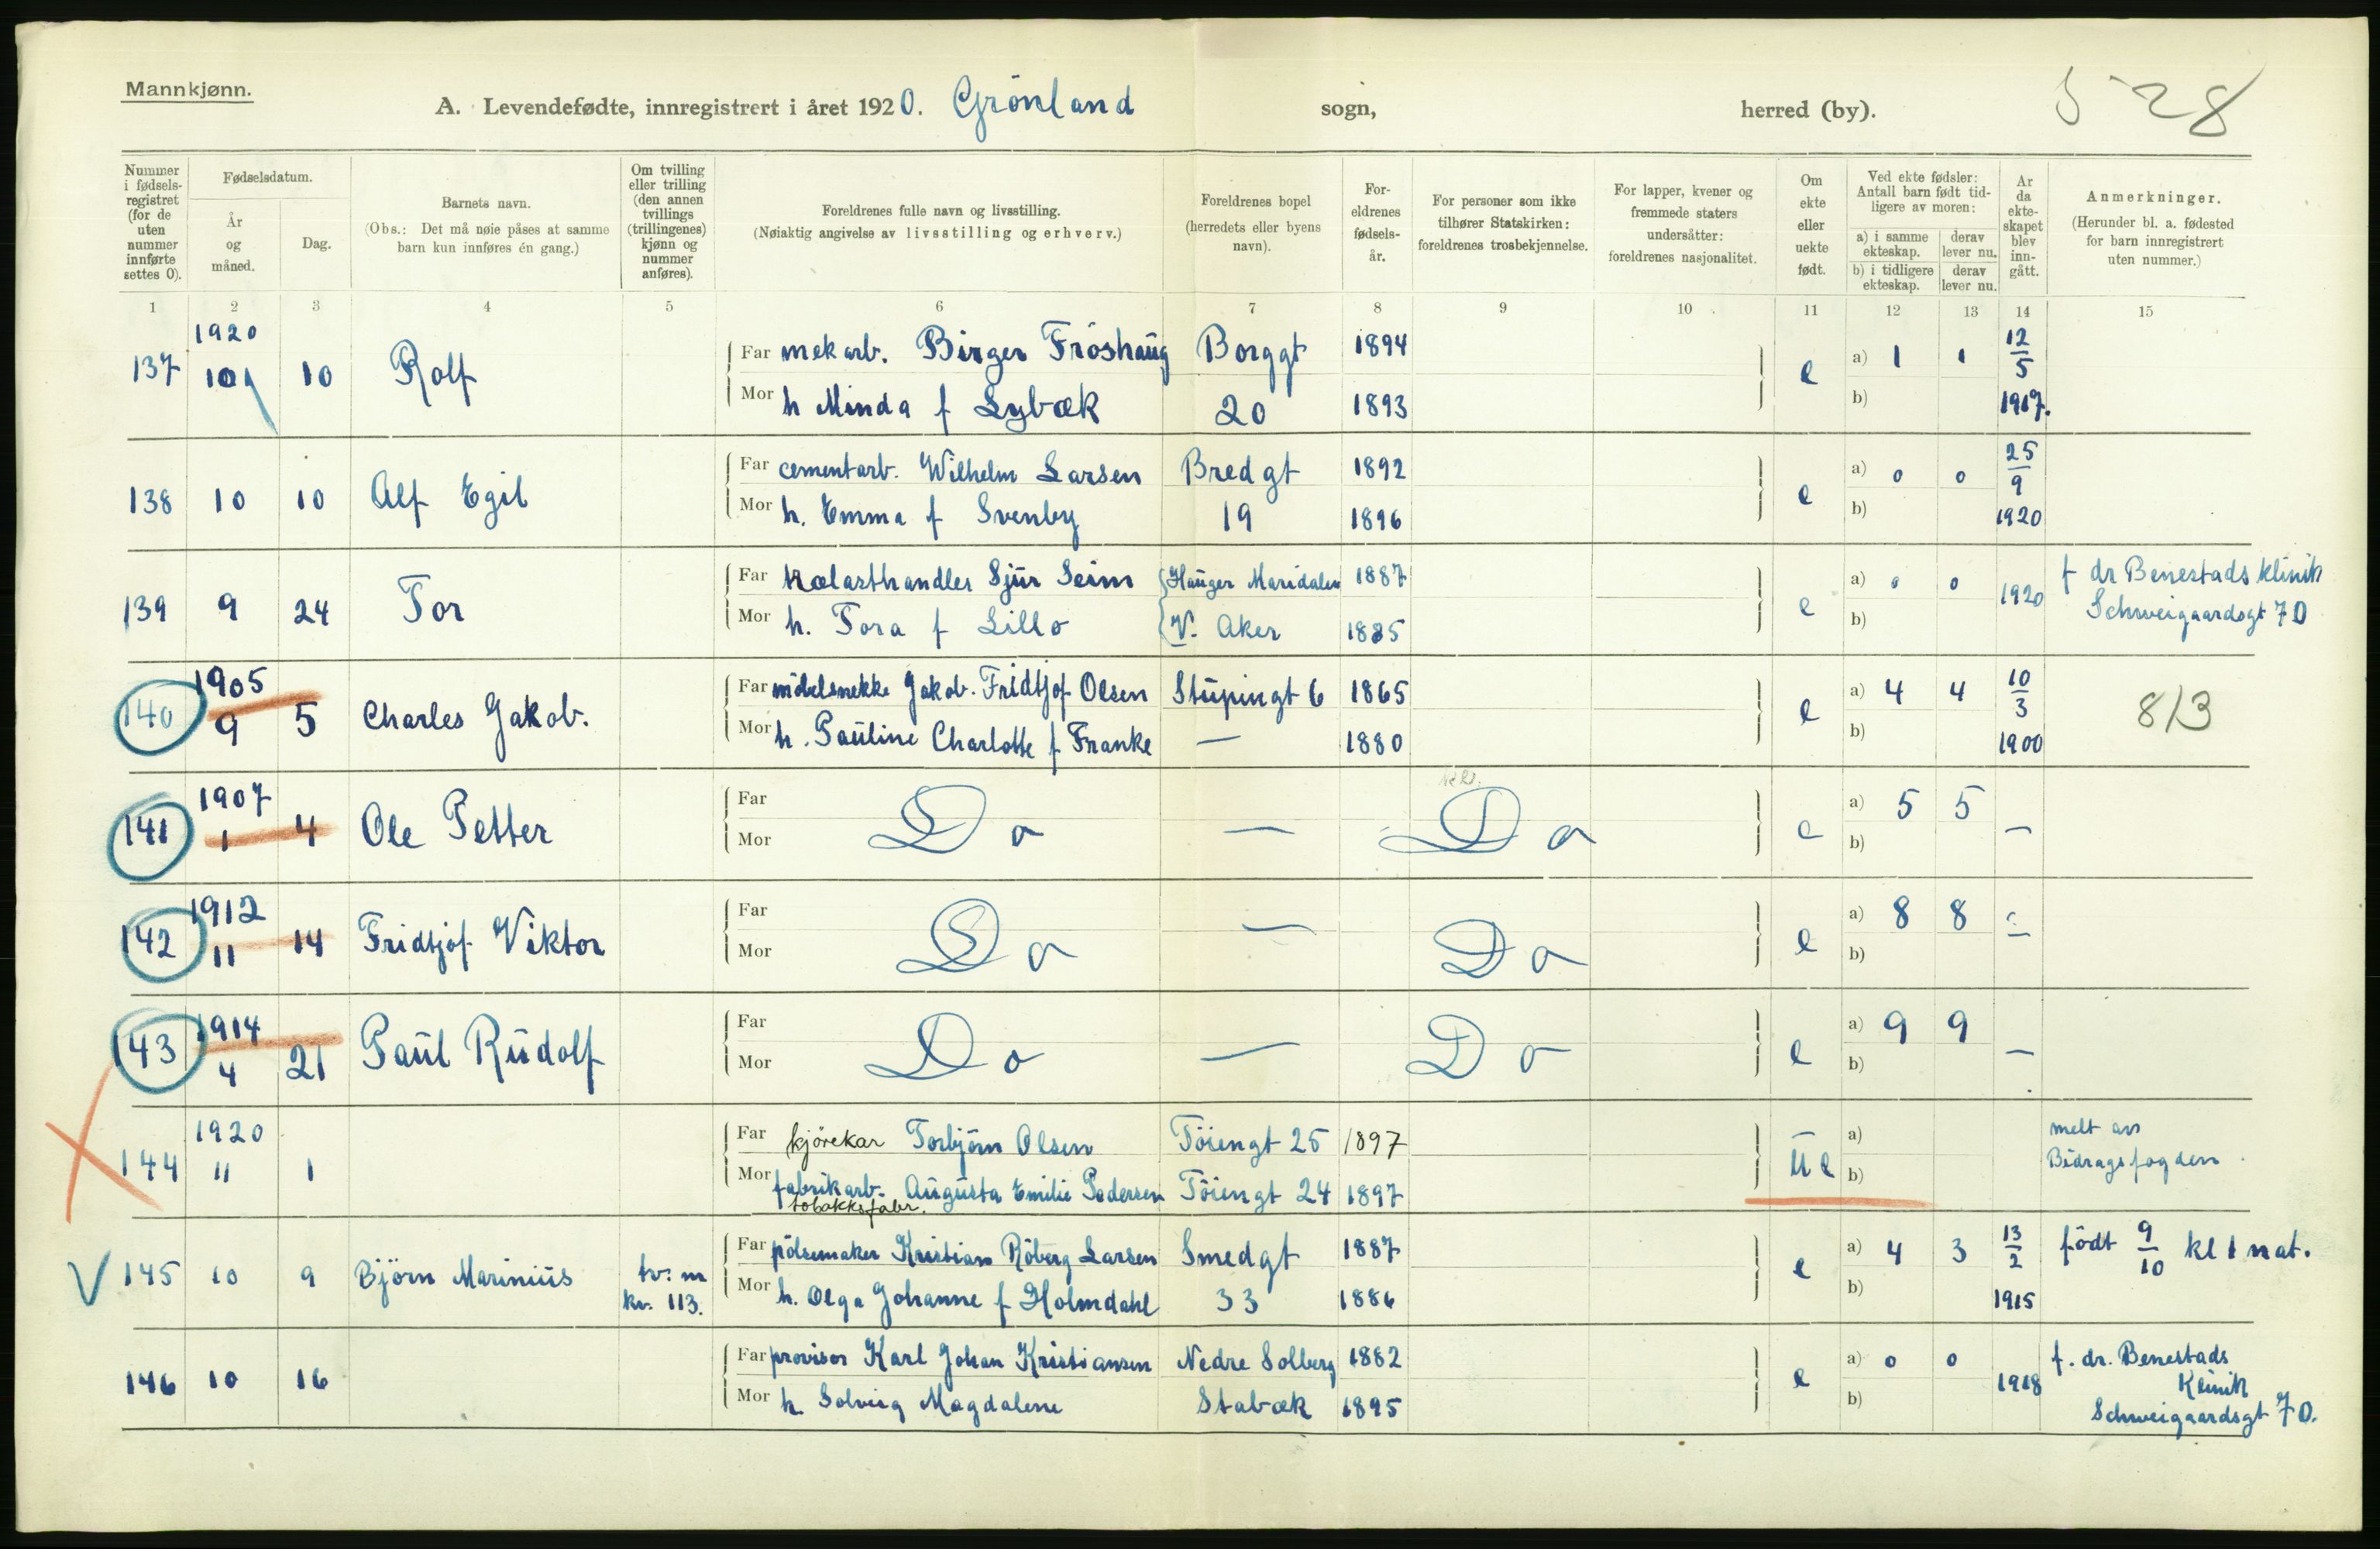 Mannkjønn.
A. Levendefødte, innregistrert i året 1920. Grönland sogn, herred (by). 28
Nummer i fødsels-registret (for de uten nummer innførte settes 0).
Fødselsdatum.
År og måned.
Dag.
Barnets navn.
(Obs.: Det må nøie påses at samme barn kun innføres én gang.)
Om tvilling eller trilling (den annen tvillings (trillingenes) kjønn og nummer anføres).
Foreldrenes fulle navn og livsstilling.
(Nøiaktig angivelse av livsstilling og erhverv.)
Foreldrenes bopel (herredets eller byens navn).
For-eldrenes fødsels-år.
For personer som ikke tilhører Statskirken: foreldrenes trosbekjennelse.
For lapper, kvener og fremmede staters undersåtter: foreldrenes nasjonalitet.
Om ekte eller uekte født.
Ved ekte fødsler: Antall barn født tid-ligere av moren:
a) i samme ekteskap. derav lever nu.
b) i tidligere ekteskap. derav lever nu.
År da ekte-skapet blev inn-gått.
Anmerkninger.
(Herunder bl. a. fødested for barn innregistrert uten nummer.)
1 2 3 4 5 6 7 8 9 10 11 12 13 14 15
137 1920 10 10 Rolf
Far mek arb. Birger Fröshaug Borggt 1894 e a) 1 1 12/5
Mor h Minda f Lybæk 20 1893 b) 1917.
138 10 10 Alf Egil
Far cementarb. Wilhelm Larsen Bredgt 1892 e a) 0 0 25/9
Mor h. Emma f Svenby 19 1896 b) 1920
139 9 24 Tor
Far Sjur Seim Hauger Maridalen 1887 e a) 0 0 1920 f dr Benestads klinik
Mor h. Tora f Lillo V. Aker 1885 b) Schweigaardsgt 70
140 1905 9 5 Charles Jakob.
Far möbelsnekke Jakob. Fridtjof Olsen Stupingt 6 1865 e a) 4 4 10/3 813
Mor h. Pauline Charlotte f Franke — 1880 b) 1900
141 1907 1 4 Ole Petter
Far Mor Do — Do e a) 5 5 b) —
142 1912 11 14 Fridtjof Viktor
Far Mor Do — Do e a) 8 8 b) —
143 1914 4 21 Paul Rudolf
Far Mor Do — Do e a) 9 9 b) —
144 1920 11 1
Far kjörekar Torbjörn Olsen Töiengt 25 1897 ue a) melt av
Mor fabrikarb. Augusta Emilie Pedersen Töiengt 24 1897 b) Bidragsfogden.
tobakksfabr.
145 10 9 Björn Marinius tv: m kv. 113.
Far pölsemaker Kristian Röberg Larsen Smedgt 1887 e a) 4 3 13/2 födt 9/10 kl 1 nat.
Mor h. Olga Johanne f Holmdahl 33 1886 b) 1915
146 10 16
Far provisor Karl Johan Kristiansen Nedre Solberg 1882 e a) 0 0 1918 f. dr. Benestads Klinik
Mor h Solveig Magdalene Stabæk 1895 b) Schweigaardsgt 70.